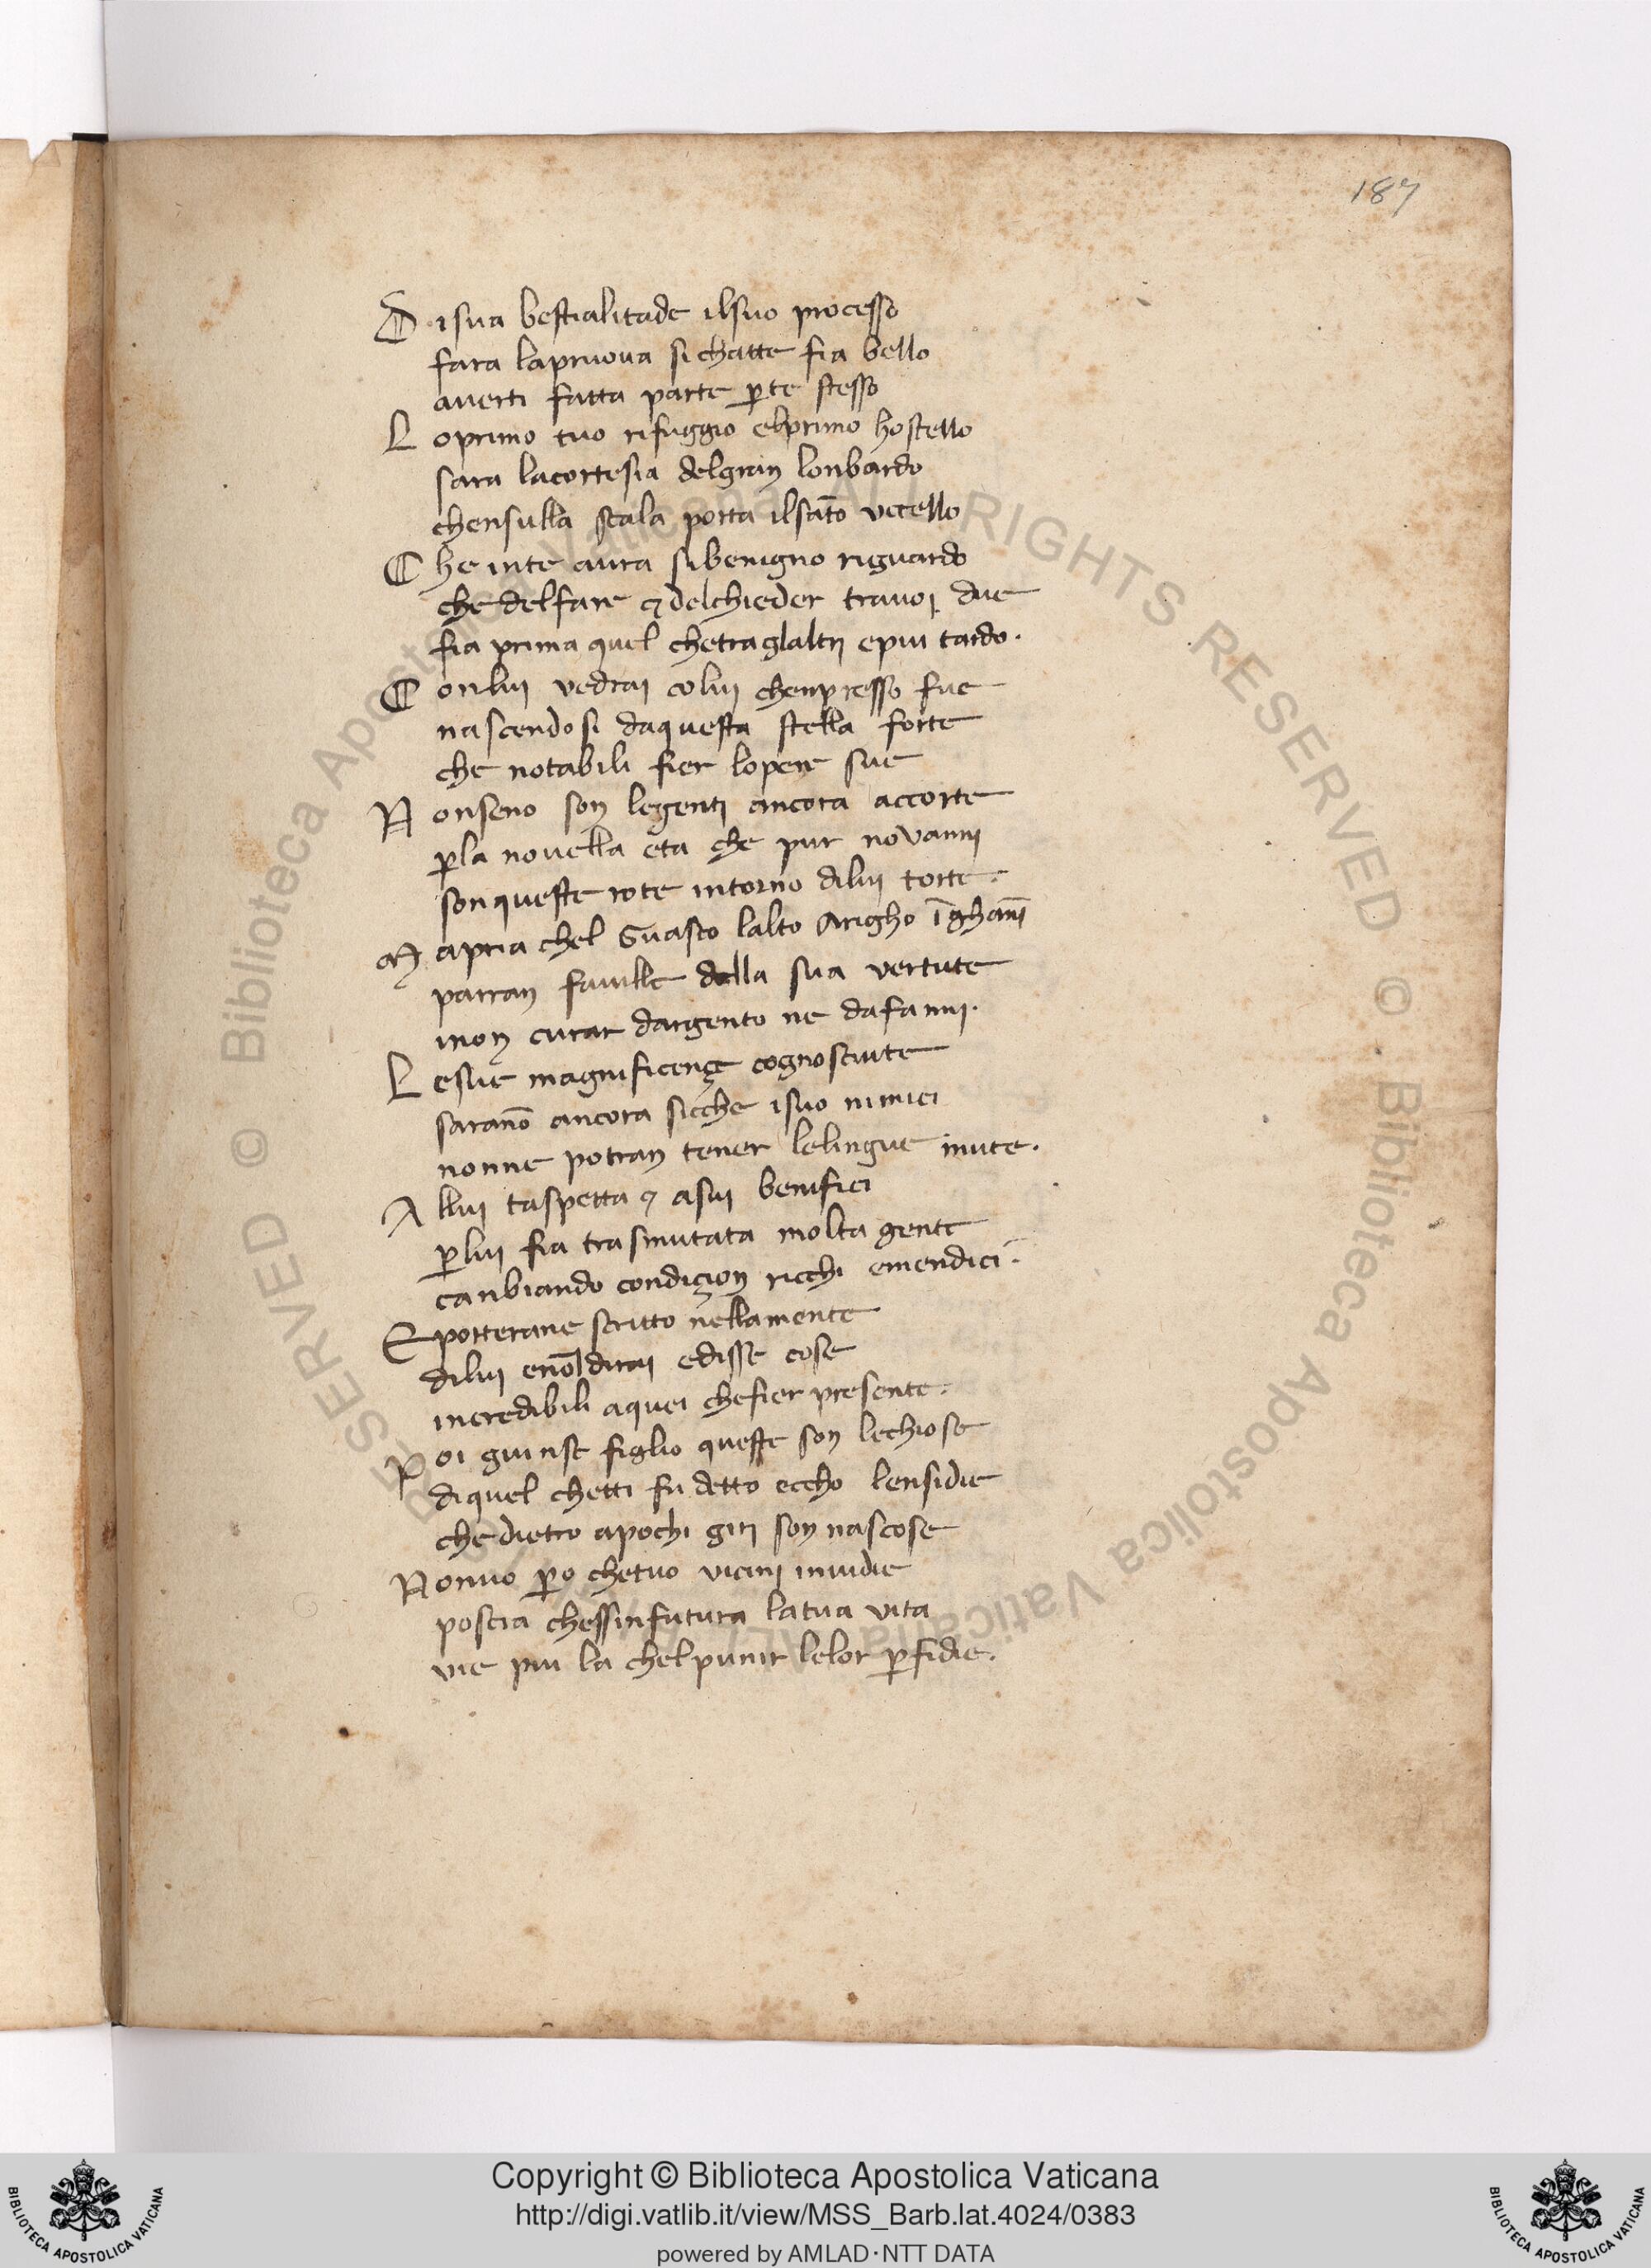 187
Disua bestialitade ilsuo processo
fara lapruova si chatte fia bello
averti fatta parte ꝑte stesso
Loprimo tuo rifuggio elprimo hostello
sara lacortesia delgran lonbardo
chensulla scala porta ilsāto uccello
Che inte aura sibenigno riguardo
che delfare ⁊ delchieder travoi due
fia prima quel chetraglaltri epiu tardo.
Conlui vedrai colui chenpresso fue
nascendosi daquesta stella forte
che notabili fier lopere sue
Nonseno son legenti ancora accorte
ꝑla novella eta che pur novanni
sonqueste rote intorno dilui torte.
Mapria chel Guasco lalto Arigho īghanī
parran faville della sua vertute
inon curar dargento ne dafanni.
Lesue magnificençe cognosciute
saranō ancora sicche isuo nimici
nonne potran tener lelingue mute.
Allui taspetta ⁊ asui benifici
ꝑlui fia trasmutata molta gente
canbiando condiçion ricchi emendici.
Eporterane scritto nellamente
dilui enōl dirai edisse cose
incredibili aquei chefier presente.
Poi giunse figlio queste son lechiose
diquel chetti fu detto eccho lensidie
che dietro apochi giri son nascose
Nonvo ꝑo chetuo vicini invidie
poscia chessinfutura latua vita
vie piu la chelpunir lelor ꝑfidie.
Biblioteca Apostolica Vaticana ALL RIGHTS RESERVED © Biblioteca Apostolica Vaticana ALL RIGHTS RESERVED ©
Copyright © Biblioteca Apostolica Vaticana
http://digi.vatlib.it/view/MSS_Barb.lat.4024/0383
powered by AMLAD·NTT DATA
BIBLIOTECA APOSTOLICA VATICANA
BIBLIOTECA APOSTOLICA VATICANA